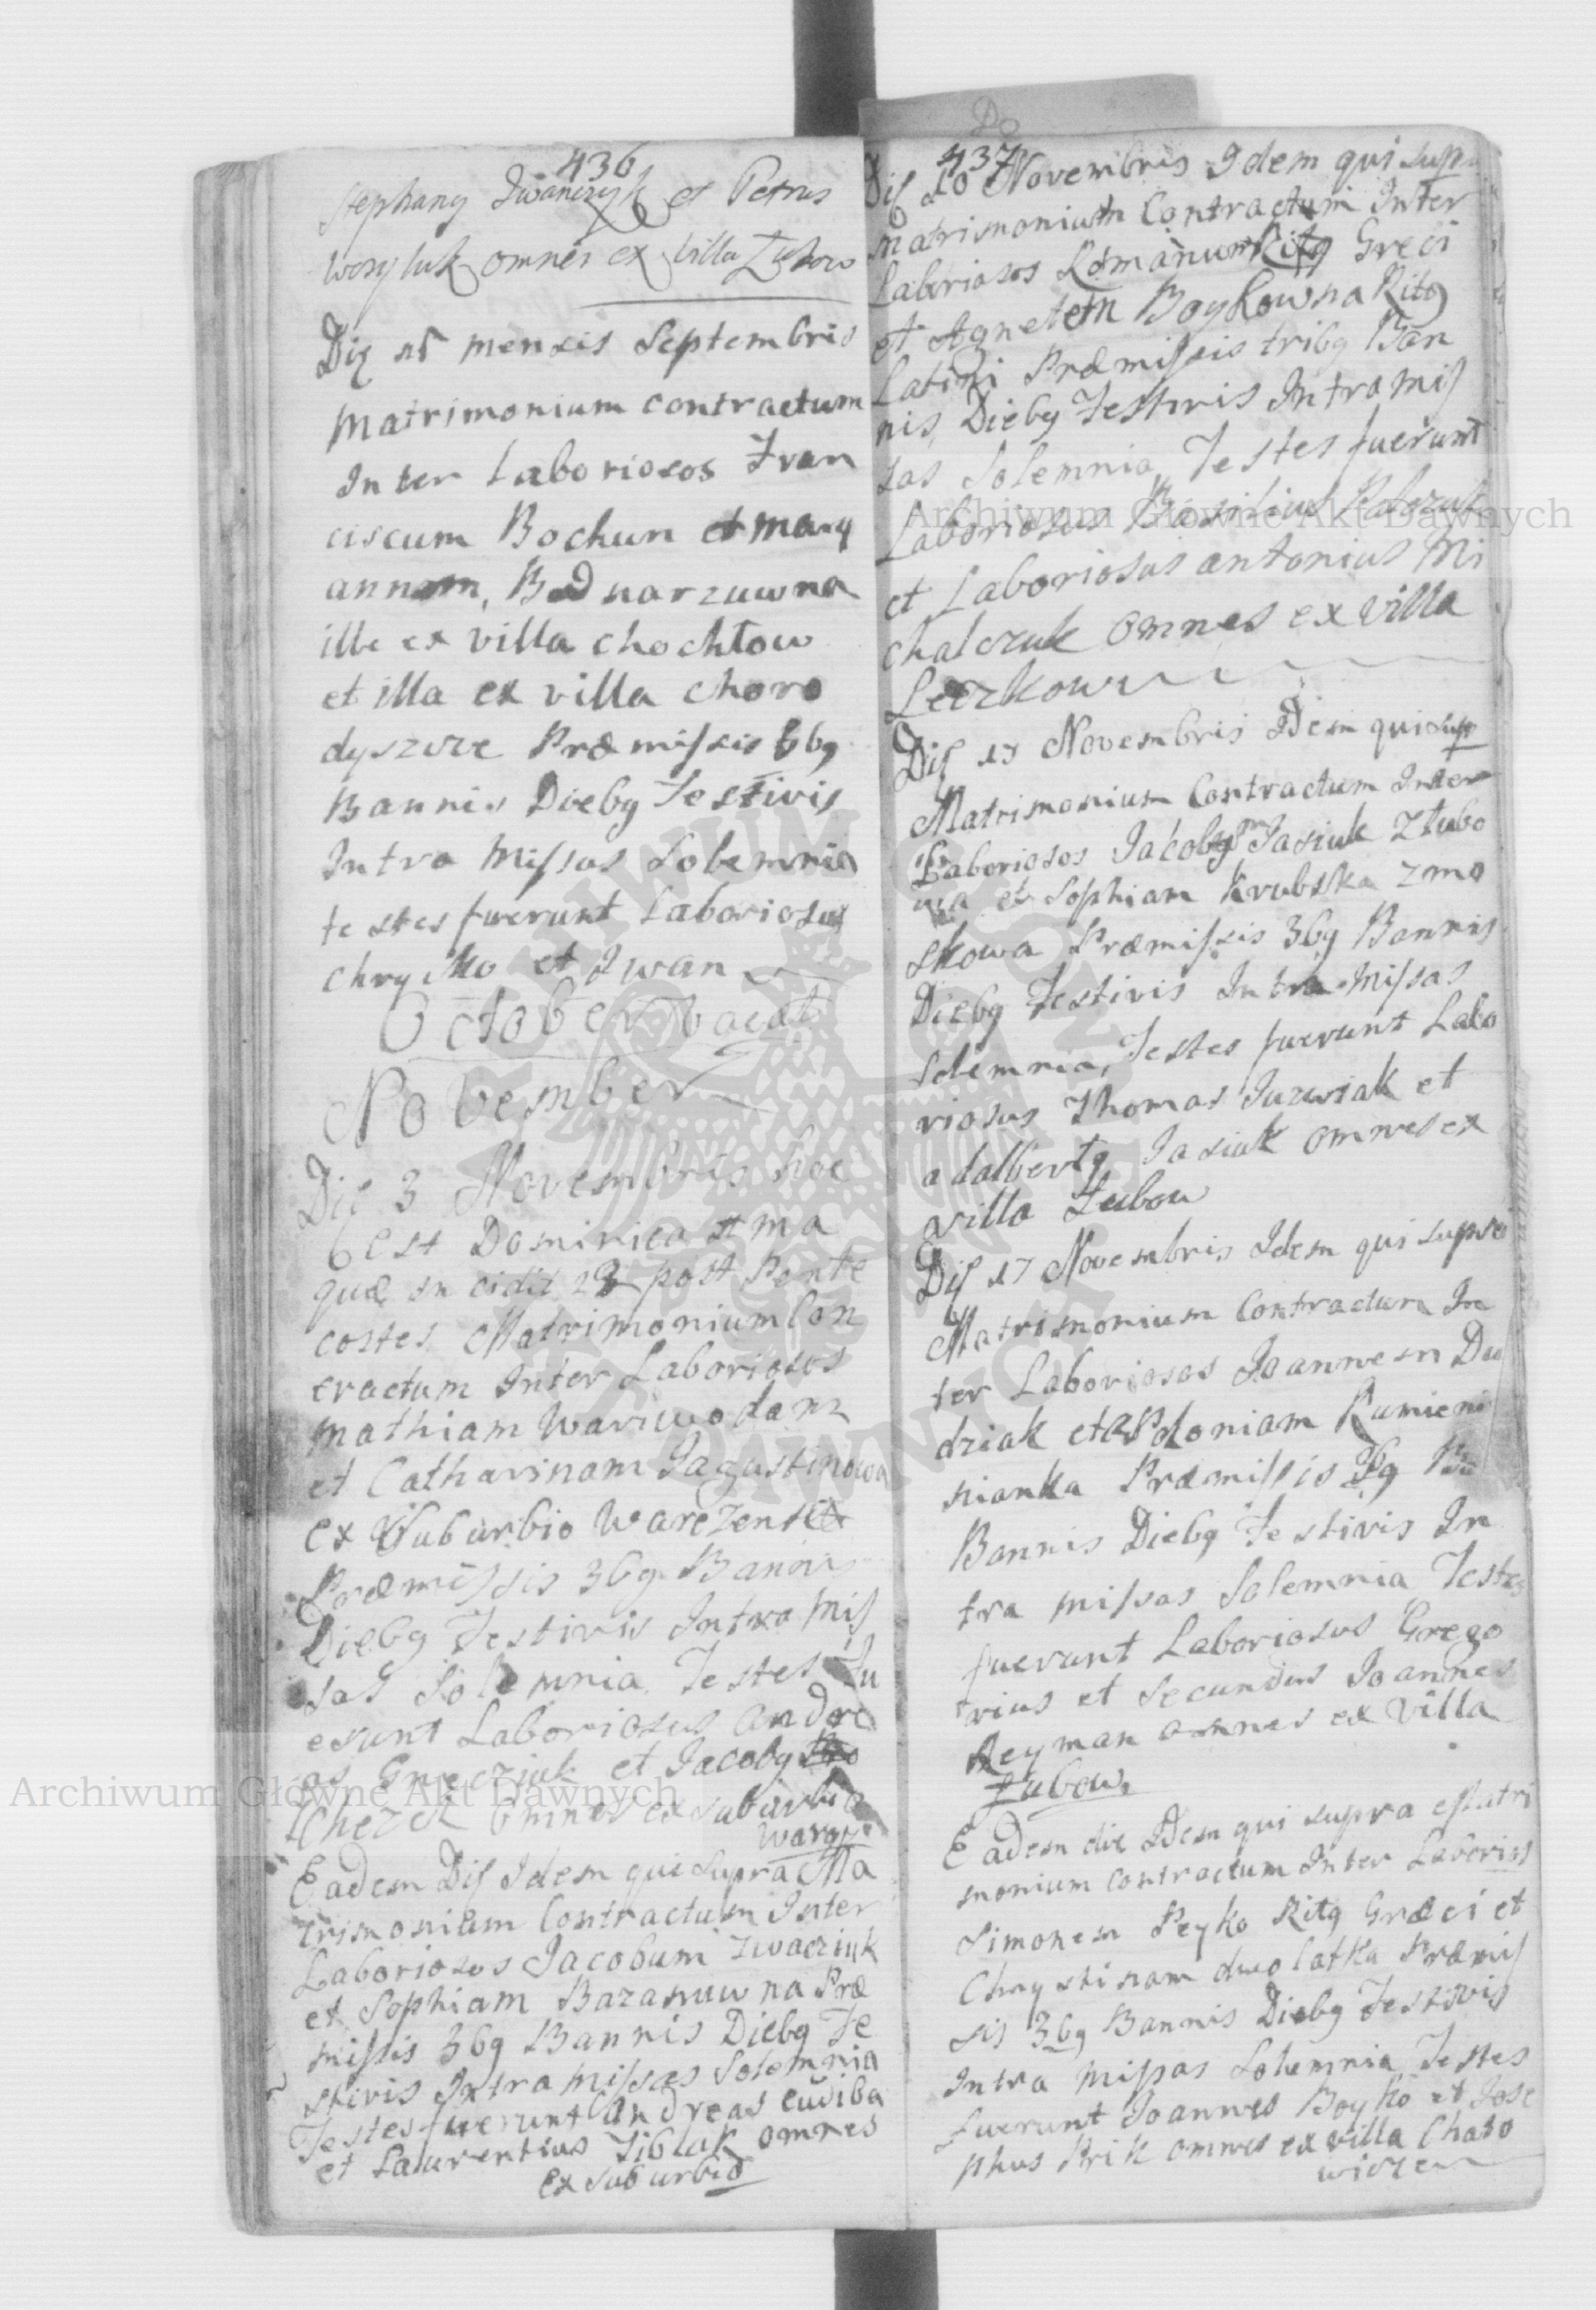 436
Stephang Iwanczyk et Petrus
Wasyluk omnes ex villa Zubow
Die 15 mensis Septembris
Matrimonium contractum
Inter Laboriosos Fran
ciscum Bochun et Mary
annam, Bednarzuwna
ille ex villa Chochłow
et illa ex villa Choro
dyszcze Præmissis 3bg
Bannis Diebg Festivis
Intra Missas Solemnia
testes fuerunt Laboriosus
Chryćko et Iwan
October Vacat
November
Die 3 Novembris hoc
est Dominica
quæ incidit 23 post Pente
costes Matrimonium Con
tractum Inter Laboriosos
Mathiam Wariwodam
et Catharinam Jagustinowa
ex Suburbio Warezensi
Præmissis 3bg Bannis
Diebg Festivis Intra Mis
sas Solemnia Testes Fu
erunt Laboriosus Andre
as et Jacobg
omnes ex suburbio
Warez
Eadem Die Idem qui supra Ma
trimonium Contractum Inter
Laboriosos Jacobum Zwaciuk
et Sophiam Bazanuwna Præ
missis 3bg Bannis Diebg Fe
stivis Intra Missas Solemnia
Testes fuerunt Andreas Cudiba
et Laurentius Siblak omnes
ex suburbio
437
Die 10 Novembris Idem qui supra
Matrimonium Contractum Inter
Laboriosos Romanum Ritg Greci
et Agnetem Boykowna Ritg
Latini Præmissis tribg Ban
nis Diebg Festivis Intra Mis
sas Solemnia Testes fuerunt
Laboriosus Basilius
et Laboriosus Antonius Mi
chalczuk omnes ex villa
Leszkow
Die 17 Novembris Idem qui sup
Matrimonium Contractum Inter
Laboriosos Jacobg Jasiuk Złubo
wa et Sophiam Krubska zmo
skowa Præmissis 3bg Bannis
Diebg Festivis Intra Missas
Solemnia, Testes fuerunt Labo
riosus Thomas Juzwiak et
Adalbertg Jasiuk omnes ex
villa Łubow
Die 17 Novembris Idem qui supra
Matrimonium Contractum In
ter Laboriosos Joannem Du
dziak et Apoloniam Rumieni
nianka Præmissis 3bg
Bannis Diebg Festivis In
tra Missas Solemnia Testes
fuerunt Laboriosus Grego
rius et Secundus Joannes
Reyman omnes ex villa
Łubow
Eadem die Idem qui supra Matri
monium contractum Inter Laborios
Simonem Peyko Ritg Græci et
Chrystinam duolatka Præmis
sis 3bg Bannis Diebg Festivis
Intra Missas Solemnia Testes
Fuerunt Joannes Boyko et Jose
phus Krik omnes ex villa Chato
wicze
Archiwum Główne Akt Dawnych
Archiwum Główne Akt Dawnych
ARCHIWUM GŁÓWNE AKT DAWNYCH